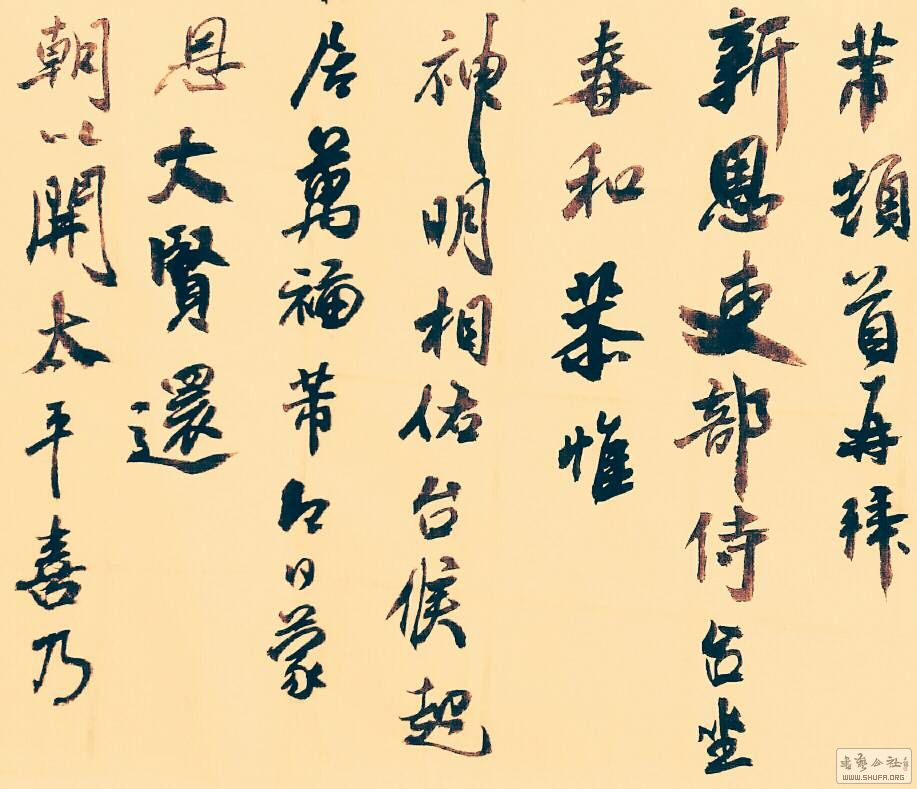 芾頓首再拜
新恩吏部侍台坐
春和恭惟
神明相佑台候起
居萬福芾即日蒙
恩大賢還
朝以開太平喜乃
WWW.SHUFA.ORG